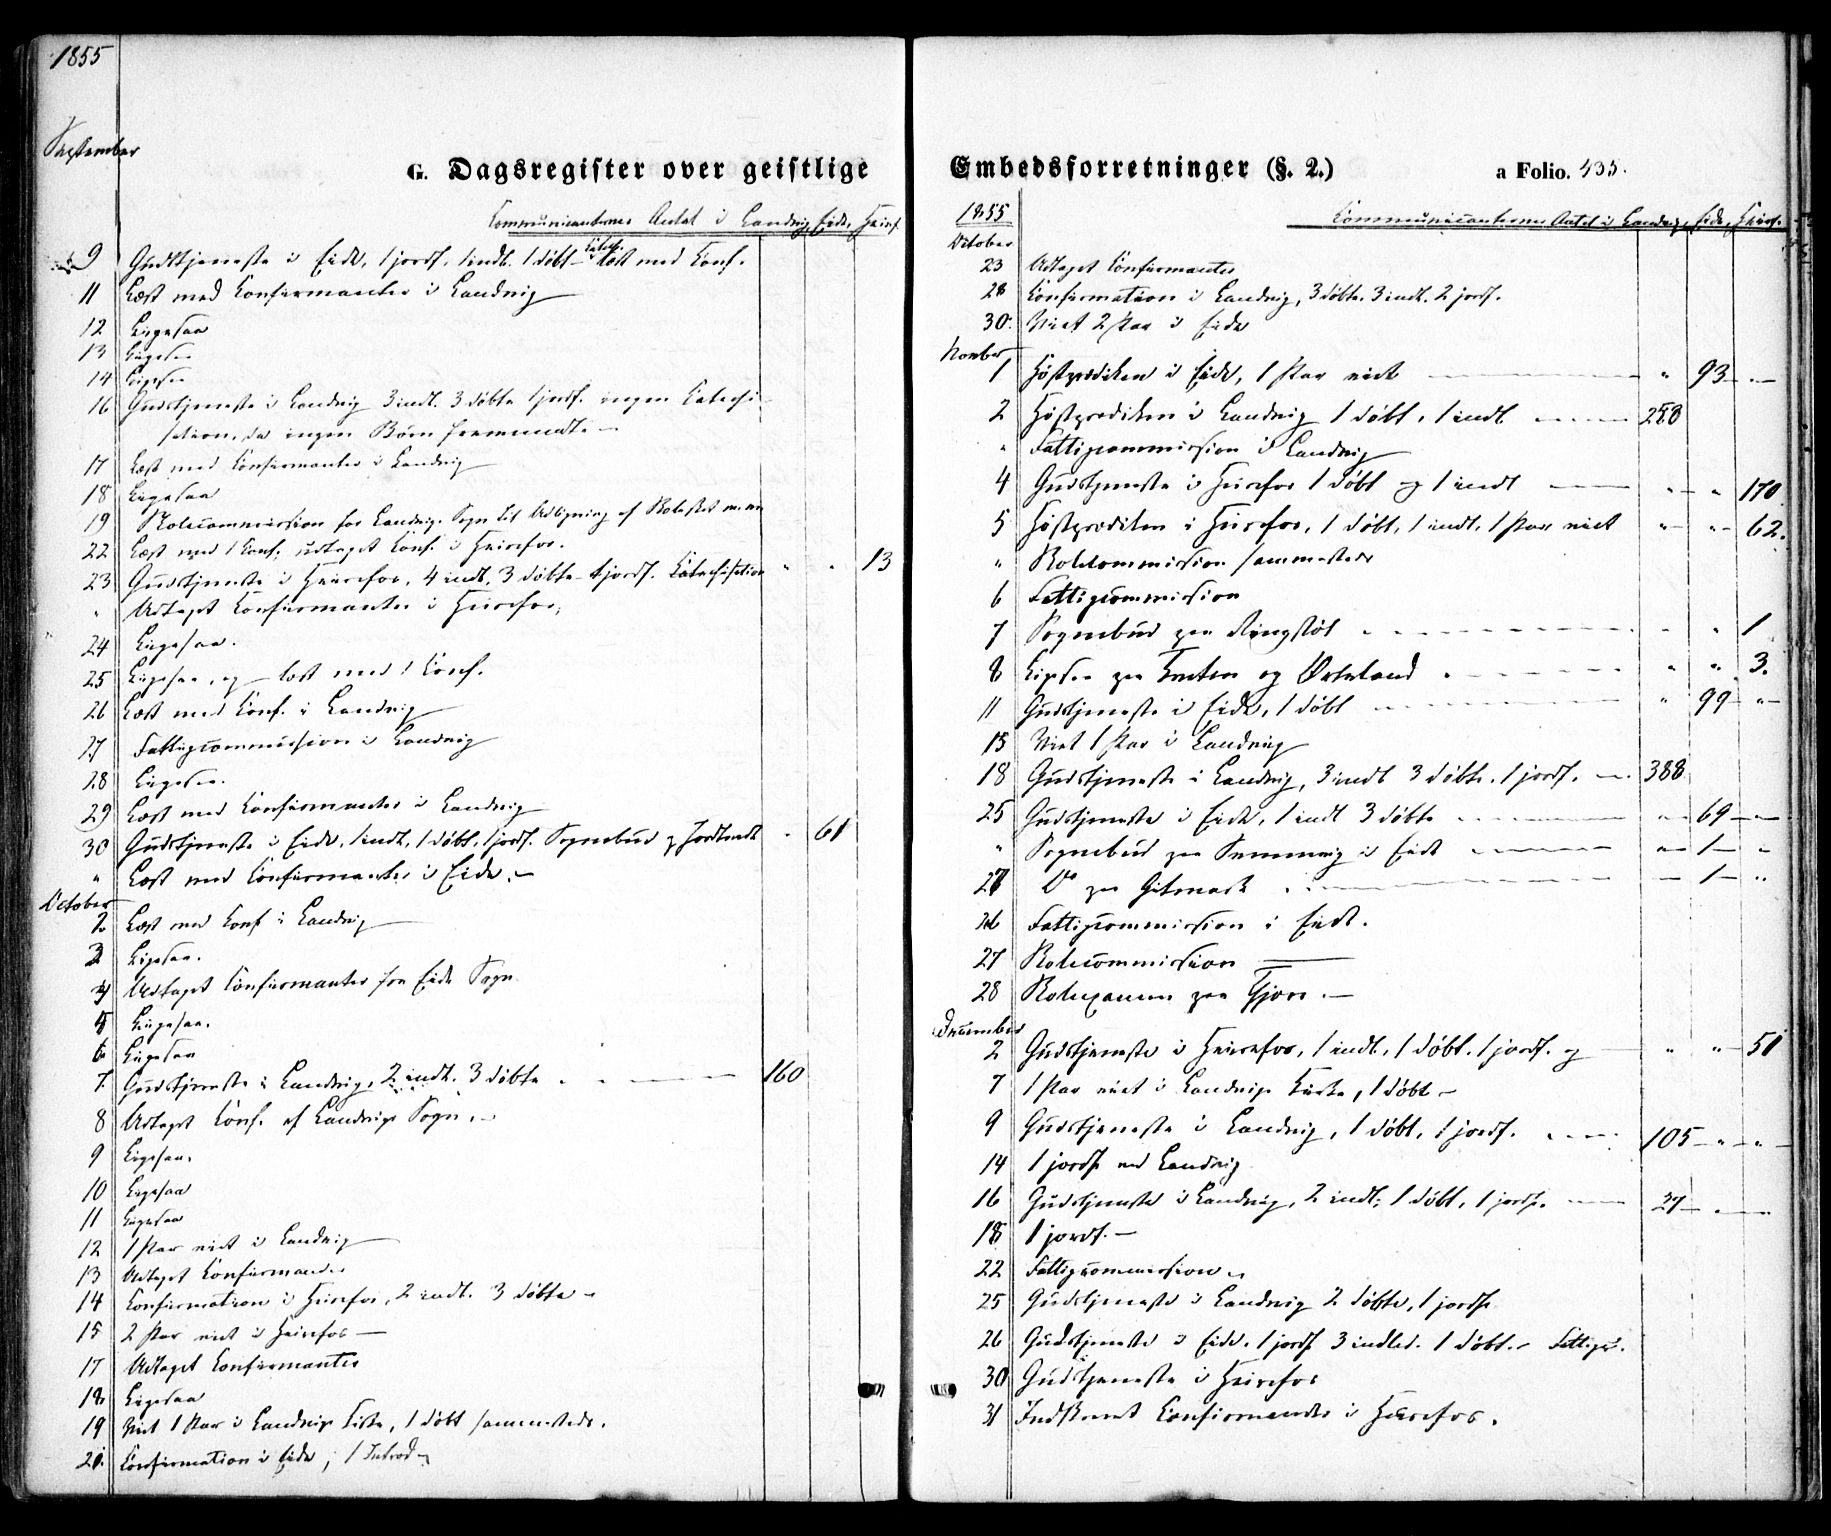 1855
September
G. Dagsregister over geistlige
Communicanternes Antal i Landvig, Eide, Heiref.
9 Gudstjeneste i Eide, 1 jordf. 1 indl. 1 döbt - læst med Conf.
11 Læst med Confirmanter i Landvig
12 Ligesaa
13 Ligesaa
14 Ligesaa
16 Gudstjeneste i Landvig 3 indl. 3 döbte 1 jordf. ingen Catechi
sation, da ingen Börn fremmødt. -
17 Læst med Confirmanter i Landvig
18 Ligesaa
19 Skolecommission for Landvigs Sogn til Udligning af Skoleskat m.m
22 Læst med 1 Conf. udtaget Conf. i Heirefos.
23 Gudstjeneste i Heirefos, 4 indl. 3 döbte - 1 jordf. Catechisation " " 13
" Udtaget Confirmanter i Heirefos,
24 Ligesaa.
25 Ligesaa, og - læst med 1 Conf.
26 Læst med Conf. i Landvig
27 Fattigcommission i Landvig
28 Ligesaa.
29 Læst med Confirmanter i Landvig
30 Gudstjeneste i Eide, 1 indl, 1 döbt, 1 jordf. Sognebud " 61
" Læst med Confirmanter i Eide. -
October
2 Læst med Conf i Landvig
3 Ligesaa.
4 Udtaget Confirmanter fra Eide Sogn
5 Ligesaa.
6 Ligesaa
7 Gudstjeneste i Landvig, 2 indl. 3 döbte 160
8 Udtaget Conf. af Landvigs Sogn. -
9 Ligesaa.
10 Ligesaa
11 Ligesaa
12 1 Par viet i Landvig
13 Udtaget Confirmander
14 Confirmation i Heirefos, 2 indl. 3 döbte -
15 2 Par viet i Heirefos -
17 Udtaget Confirmanter
18 Ligesaa
19 Viet 1 Par i Landvigs Kirke, 1 döbt sammesteds.
21. Confirmation i Eide, 1 Introd -
Embedsforretninger (§. 2.)
a Folio. 535.
1855
Communicanternes Antal i Landvig, Eide, Heiref.
October
23 Udtaget Confirmanter
28 Confirmation i Landvig, 3 döbte. 3 indl. 2 jordf.
30. Viet 2 Par i Eide
November
1 Höstprædiken i Eide, 1 Par viet " 93 "
2 Höstprædiken i Landvig 1 döbt, 1 indl 258
" Fattigcommission i Landvig
4 Gudstjeneste i Heirefos 1 döbt og 1 indl " " 170
5 Höstprædiken i Heirefos, 1 döbt, 1 indl, 1 Par viet " " 62.
" Skolecommission sammesteds
6 Fattigcommission
7 Sognebud paa Ringsköt " " 1
8 Ligesaa paa Tveten og Østerland " " 3.
11 Gudstjeneste i Eide, 1 döbt " 99 "
15 Viet 1 Par i Landvig
18 Gudstjeneste i Landvig, 3 indl 3 döbte. 1 jordf. 388
25 Gudstjeneste i Eide, 1 indl 3 döbte " 69 "
" Sognebud paa i Eide " 1 "
27 Do paa Gitmark " 1 "
26 Fattigcommission i Eide.
27 Skolecommission
28 Skoleexamen paa Fjære. -
December
2 Gudstjeneste i Heirefos, 1 indl, 1 döbt. 1 jordf. og " " 51
7 1 Par viet i Landvigs Kirke, 1 döbt -
9 Gudstjeneste i Landvig, 1 döbt, 1 jordf. 105 " "
14 1 jordf. ved Landvig
16 Gudstjeneste i Landvig, 2 indl; 1 döbt, 1 jordf. 27
18 1 jordf. -
22 Fattigcommission
25 Gudstjeneste i Landvig 2 döbte, 1 jordf.
26 Gudstjeneste i Eide. 1 jordf 3 indled. 1 döbt. - Fattigc.
30 Gudstjeneste i Heirefos
31 Indskrevet Confirmander i Heirefos.